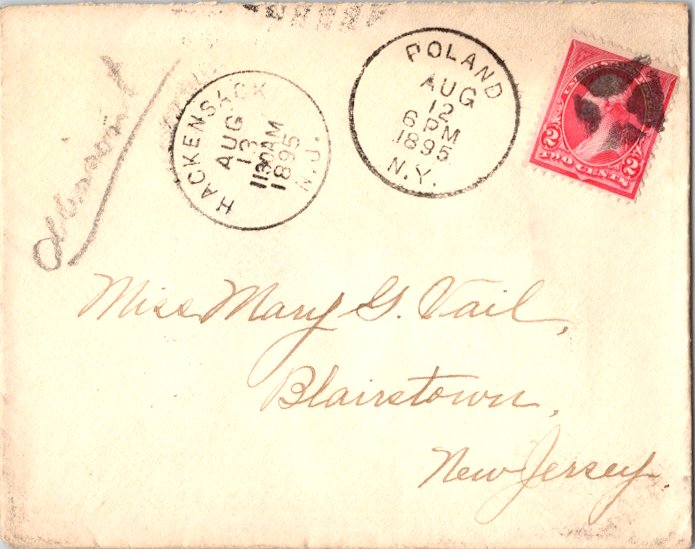 HACKENSACK
AUG
13
1130AM
1895
N.J.
POLAND
AUG
12
6 PM
1895
N.Y.
2 2
TWO CENTS
Miss Mary G. Vail,
Blairstown,
New Jersey.